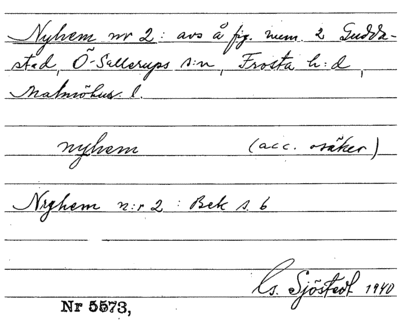 Nyhem nr 2: avs å fig. num. 2 Gudda-
stad, Ö-Sallerups s:n, Frosta h:d,
Malmöhus l.
nyhem (acc. osäker)
Nyhem n:r 2 : Bek s. 6
Gs. Sjöstedt 1940
Nr 5573,